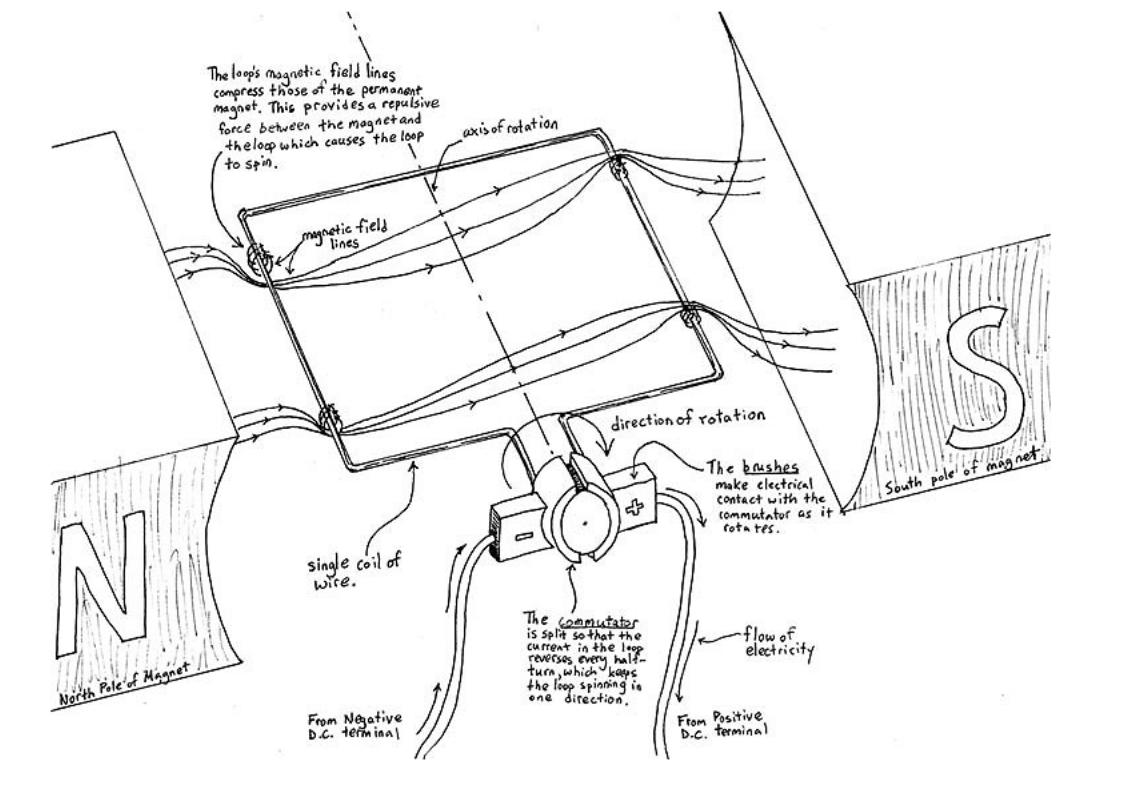 The loop's magnetic field lines
compress those of the permanent
magnet. This provides a repulsive
force between the magnet and
the loop which causes the loop
to spin.
axis of rotation
magnetic field
lines
direction of rotation
The brushes
make electrical
contact with the
commutator as it
rotates.
S
South pole of magnet.
N
North Pole of Magnet
+
-
single coil of
wire.
The commutator
is split so that the
current in the loop
reverses every half-
turn, which keeps
the loop spinning in
one direction.
flow of
electricity
From Negative
D.C. terminal
From Positive
D.C. terminal